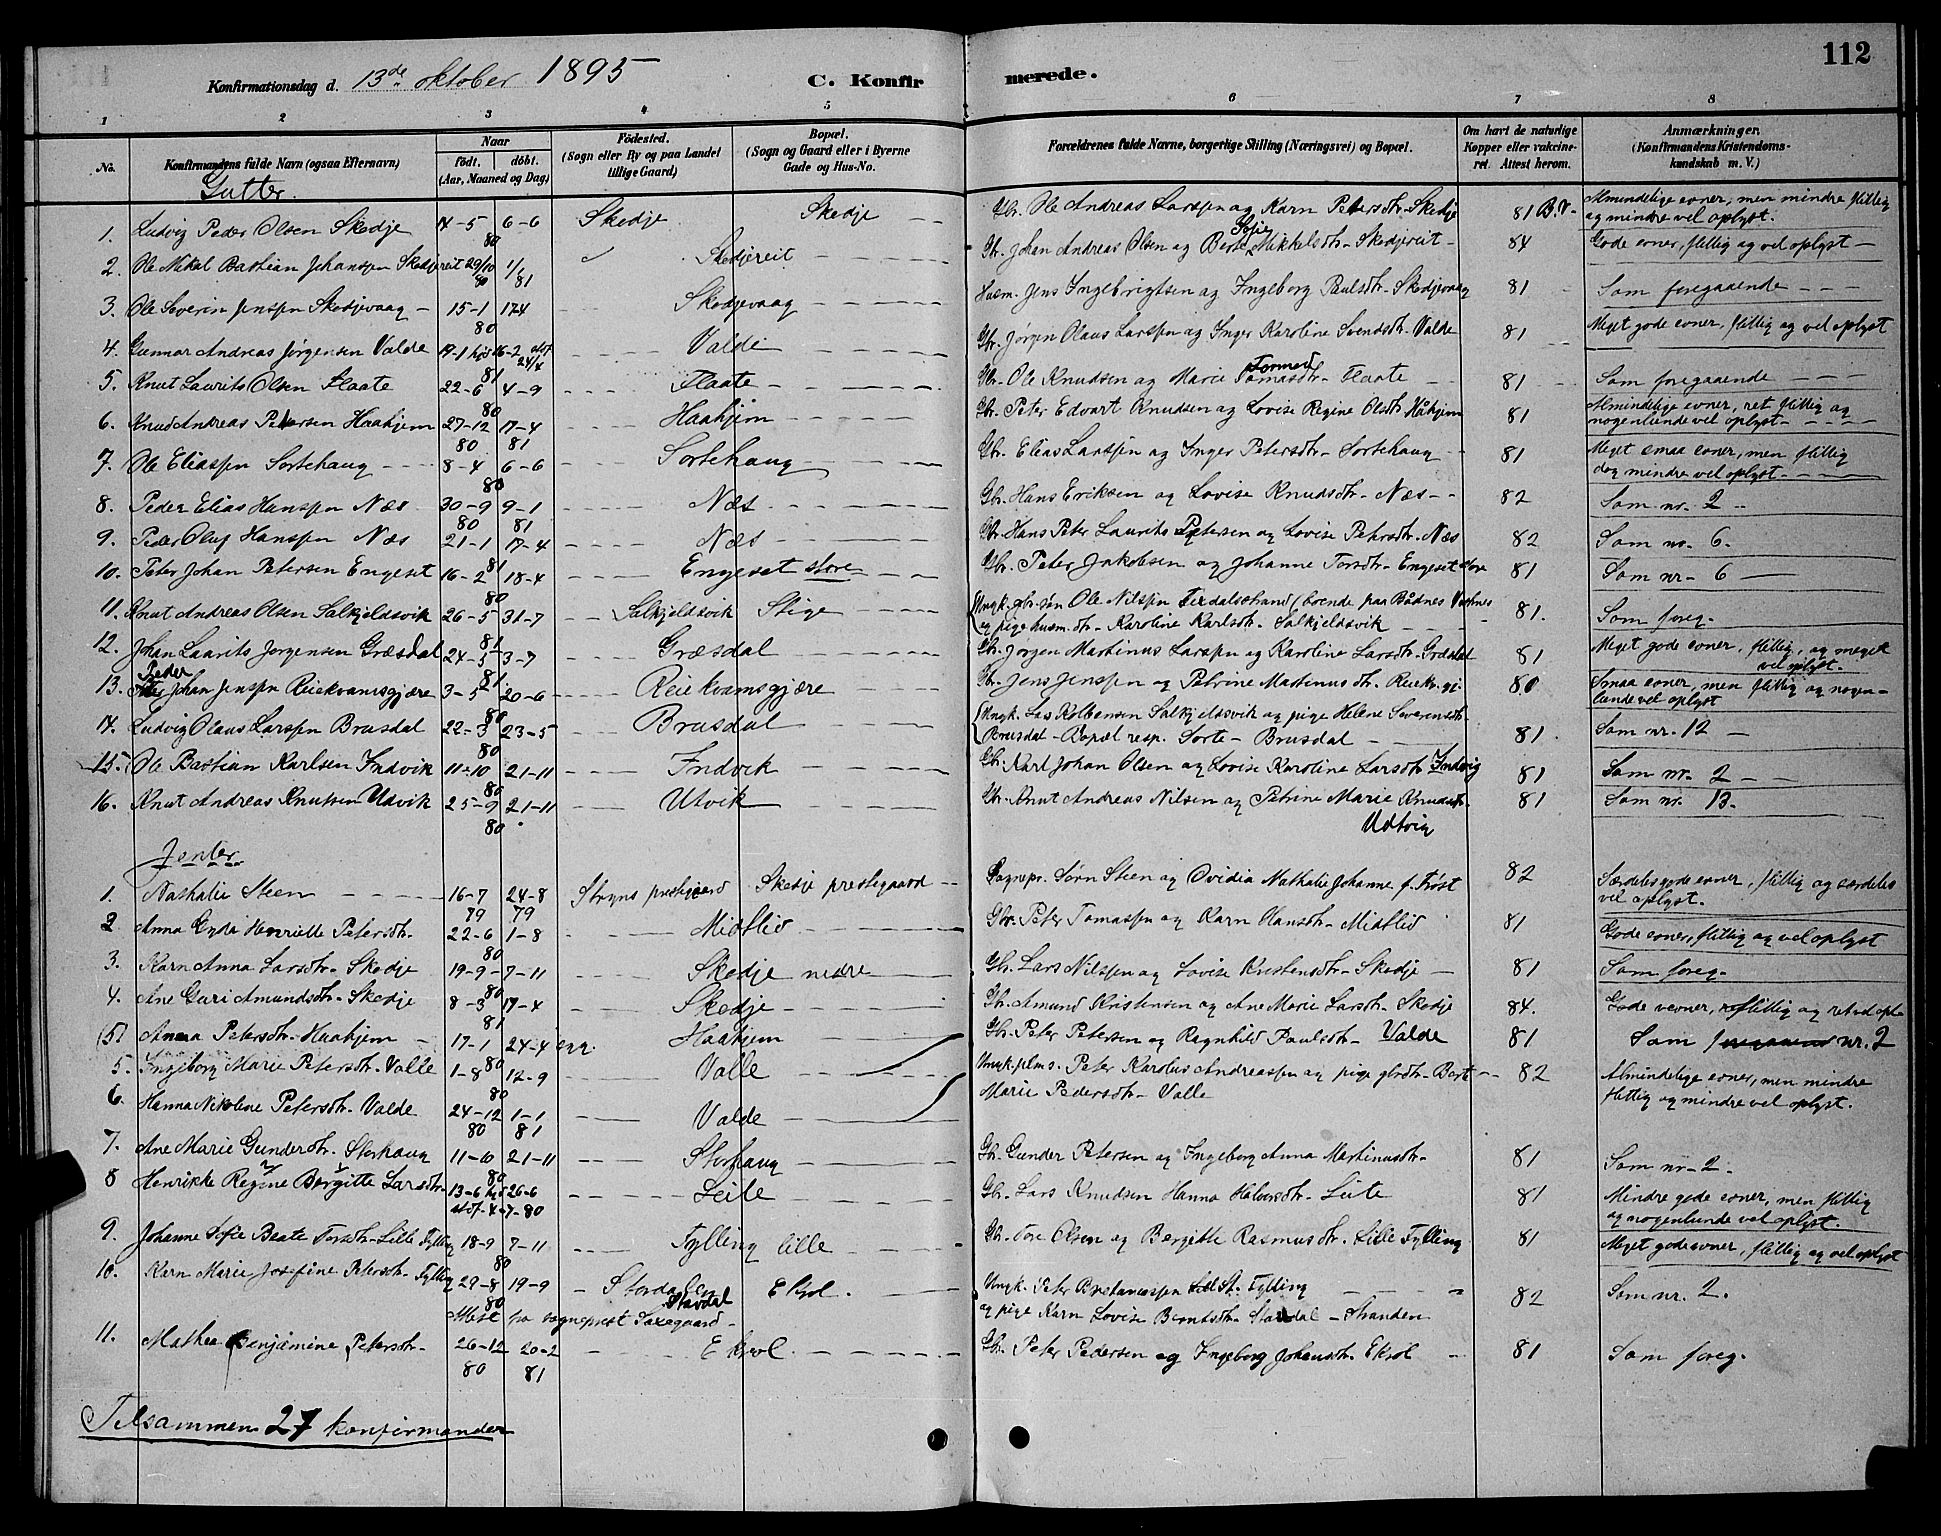 112
Konfirmationsdag d. 13de oktober 1895 C. Konfirmerede.
1 2 3 4 5 6 7 8
No. Konfirmandens fulde Navn (ogsaa Efternavn) Naar født. døbt. (Aar, Maaned og Dag) Fødested. (Sogn eller By og paa Landet tillige Gaard) Bopæl. (Sogn og Gaard eller i Byerne Gade og Hus-No. Forældrenes fulde Navne, borgerlige Stilling (Næringsvei) og Bopæl. Om havt de naturlige Kopper eller vaccineret. Attest herom. Anmærkninger. (Konfirmandens Kristendomskundskab m. V.)
Gutter.
1. Ludvig Peder Olsen Skodje 4-5 80 6-6 Skodje Skodje Gbr. Ole Andreas Larssen og Karn Petersdtr. Skodje 81 B.V. Almindelige evner, men mindre flittig og mindre vel oplyst.
2. Ole Mikal Bastian Johanssen Skodjereit 29/10 80 81 Skodjereit Gbr. Johan Andreas Olsen og Berte Sofie Mikkelsdtr. Skodjereit 84 Gode evner, flittig og vel oplyst
3. Ole Severin Jenssen Skodjevaag 15-1 80 17-4 Skodjevaag Husm. Jens Ingebrigtsen og Ingeborg Paulsdtr. Skodjevaag 81 Som foregaaende
4. Gunnar Andreas Jørgensen Valde 17-1 hjd 16-2 81 24/4 Valde Gbr. Jørgen Olaus Larssen og Inger Karoline Svendsdtr. Valde 81 Meget gode evner, flittig og vel oplyst
5. Knut Laurits Olsen Flaate 22-6 80 4-9 Flaate Gbr. Ole Knudsen og Marie Tomasdtr. Flaate 81 Som foregaaende
6. Knud Andreas Petersen Haahjem 27-12 80 17-4 81 Haahjem Gbr. Peter Edvart Knudsen og Lovise Regine Olsdtr. Håhjem 81 Almindelige evner, ret flittig og nogenlunde vel oplyst
7. Ole Eliassen Sortehaug 8-4 80 6-6 Sortehaug Gbr. Elias Larssen og Inger Petersdtr. Sortehaug 81 Meget smaa evner, men flittig dog mindre vel oplyst
8. Peder Elias Hanssen Næs 30-9 80 9-1 81 Næs Gbr. Hans Eriksen og Lovise Knudsdtr. Næs 82 Som nr. 2
9. Peder Oluf Hanssen Næs 21-1 81 17-4 Næs Gbr. Hans Peter Laurits Petersen og Lovise Petersdtr. Næs 82 Som nr. 6.
10. Peter Johan Petersen Engeset 16-2 80 18-4 Engeset store Gbr. Peter Jakobsen og Johanne Torsdtr. Engeset store 81 Som nr. 6
11. Knut Andreas Olsen Salkjeldsvik 26-5 81 31-7 Salkjeldsvik Stige Ungk. gbr. søn Ole Nilssen (boende paa Bådnes
og pige husm.dtr. Karoline Karlsdtr. Salkjeldsvik 81. Som foreg.
12. Johan Laurits Jørgensen Græsdal 24-5 81 3-7 Græsdal Gbr. Jørgen Martinus Larssen og Karoline Larsdtr. Græsdal 81 Meget gode evner, flittig, og meget vel oplyst.
13. Peder Johan Jenssen Reiekvamsgjære 3-5 80 20-6 Reiekvamsgjære Gbr. Jens Jenssen og Petrine Martinusdtr. Reiekv.gj. 80 Smaa evner, men flittig og nogenlunde vel oplyst
14. Ludvig Olaus Larssen Brusdal 22-3 80 23-5 Brusdal Ungk. Lars Kolbensen Salkjeldsvik og pige Helene Severensdtr.
Brusdal - Bopæl resp. Sorte - Brusdal 81 Som nr. 12
15. Ole Bastian Karlsen Indvik 11-10 80 21-11 Indvik Gbr. Karl Johan Olsen og Lovise Karoline Larsdtr. Indvig 81 Som nr. 2
16. Knut Andreas Knutsen Udvik 25-9 80 21-11 Utvik Gbr. Knut Andreas Nilsen og Petrine Marie Knudsdtr. Udtvig 81 Som nr. 13.
Jenter
1. Nathalie Steen 16-7 79 24-8 79 Stryns prestegaard Skodje prestegaard Sognepr. Sørn Steen og Ovidia Nathalie Johanne f. Frost 82 Særdeles gode evner, flittig og særdeles vel oplyst.
2. Anna Gyda Henriette Petersdtr. 22-6 80 1-8 Midtlid Gbr. Peter Tomassen og Karn Hansdtr. Midtlid 81 Gode evner, flittig og vel oplyst
3. Karn Anna Larsdtr. Skodje 19-9 80 7-11 Skodje nedre Gbr. Lars Nilssen og Lovise Kristensdtr. Skodje 81 Som foreg.
4. Ane Guri Amundsdtr. Skodje 8-3 81 17-4 Skodje Gbr. Amund Kristensen og Ane Marie Larsdtr. Skodje 84. Gode evner, flittig og ret vel oplt
(5) Anna Petersdtr. Haahjem 17-1 80 24-4 Haahjem Gbr. Peter Petersen og Ragnhild Paulsdtr. Valde 81 Som nr. 2
5. Ingeborg Marie Petersdtr. Valle 1-8 80 12-9 Valle Ungk. Peter Karolus Andreassen og pige gbrdtr. Berte
Marie Pedersdtr. Valle 82 Almindelige evner, men mindre flittig og mindre vel oplyst.
6. Hanna Nikoline Petersdtr. Valde 24-12 80 1-1 81 Valde
7. Ane Marie Gundersdtr. Storhaug 11-10 80 21-11 Storhaug Gbr. Gunder Petersen og Ingeborg Anna Martinusdtr. 81 Som nr. 2.
8 Henrikke Regine Bergitte Larsdtr. 13-6 hjd 26-6 stdf. 4-7-80 Leite Gbr. Lars Knudsen Hanna Halvorsdtr. Leite 81 Mindre gode evner, men flittig og nogenlunde vel oplyst.
9. Johanne Sofie Beate Torsdtr. Lille Fylling 18-9 80 7-11 Fylling lille Gbr. Tore Olsen og Bergitte Rasmusdtr. Lille Fylling 81 Meget gode evner, flittig og vel oplyst
10. Karn Marie Josefine Petersdtr. Fylling 29-8 80 19-9 Stordalen Ekrol. Ungk. Peter Fylling
og pige Karn Lovise Berntsdtr. Stordal - Stranden 82 Som nr. 2.
Attest fra sogneprest Stordal
11. Mathea Benjamine Petersdtr. 26-12 80 20-2 81 Ekrol. Gbr. Peter Pedersen og Ingeborg Johansdtr. Ekrol 81 Som foreg.
Tilsammen 27 konfirmander